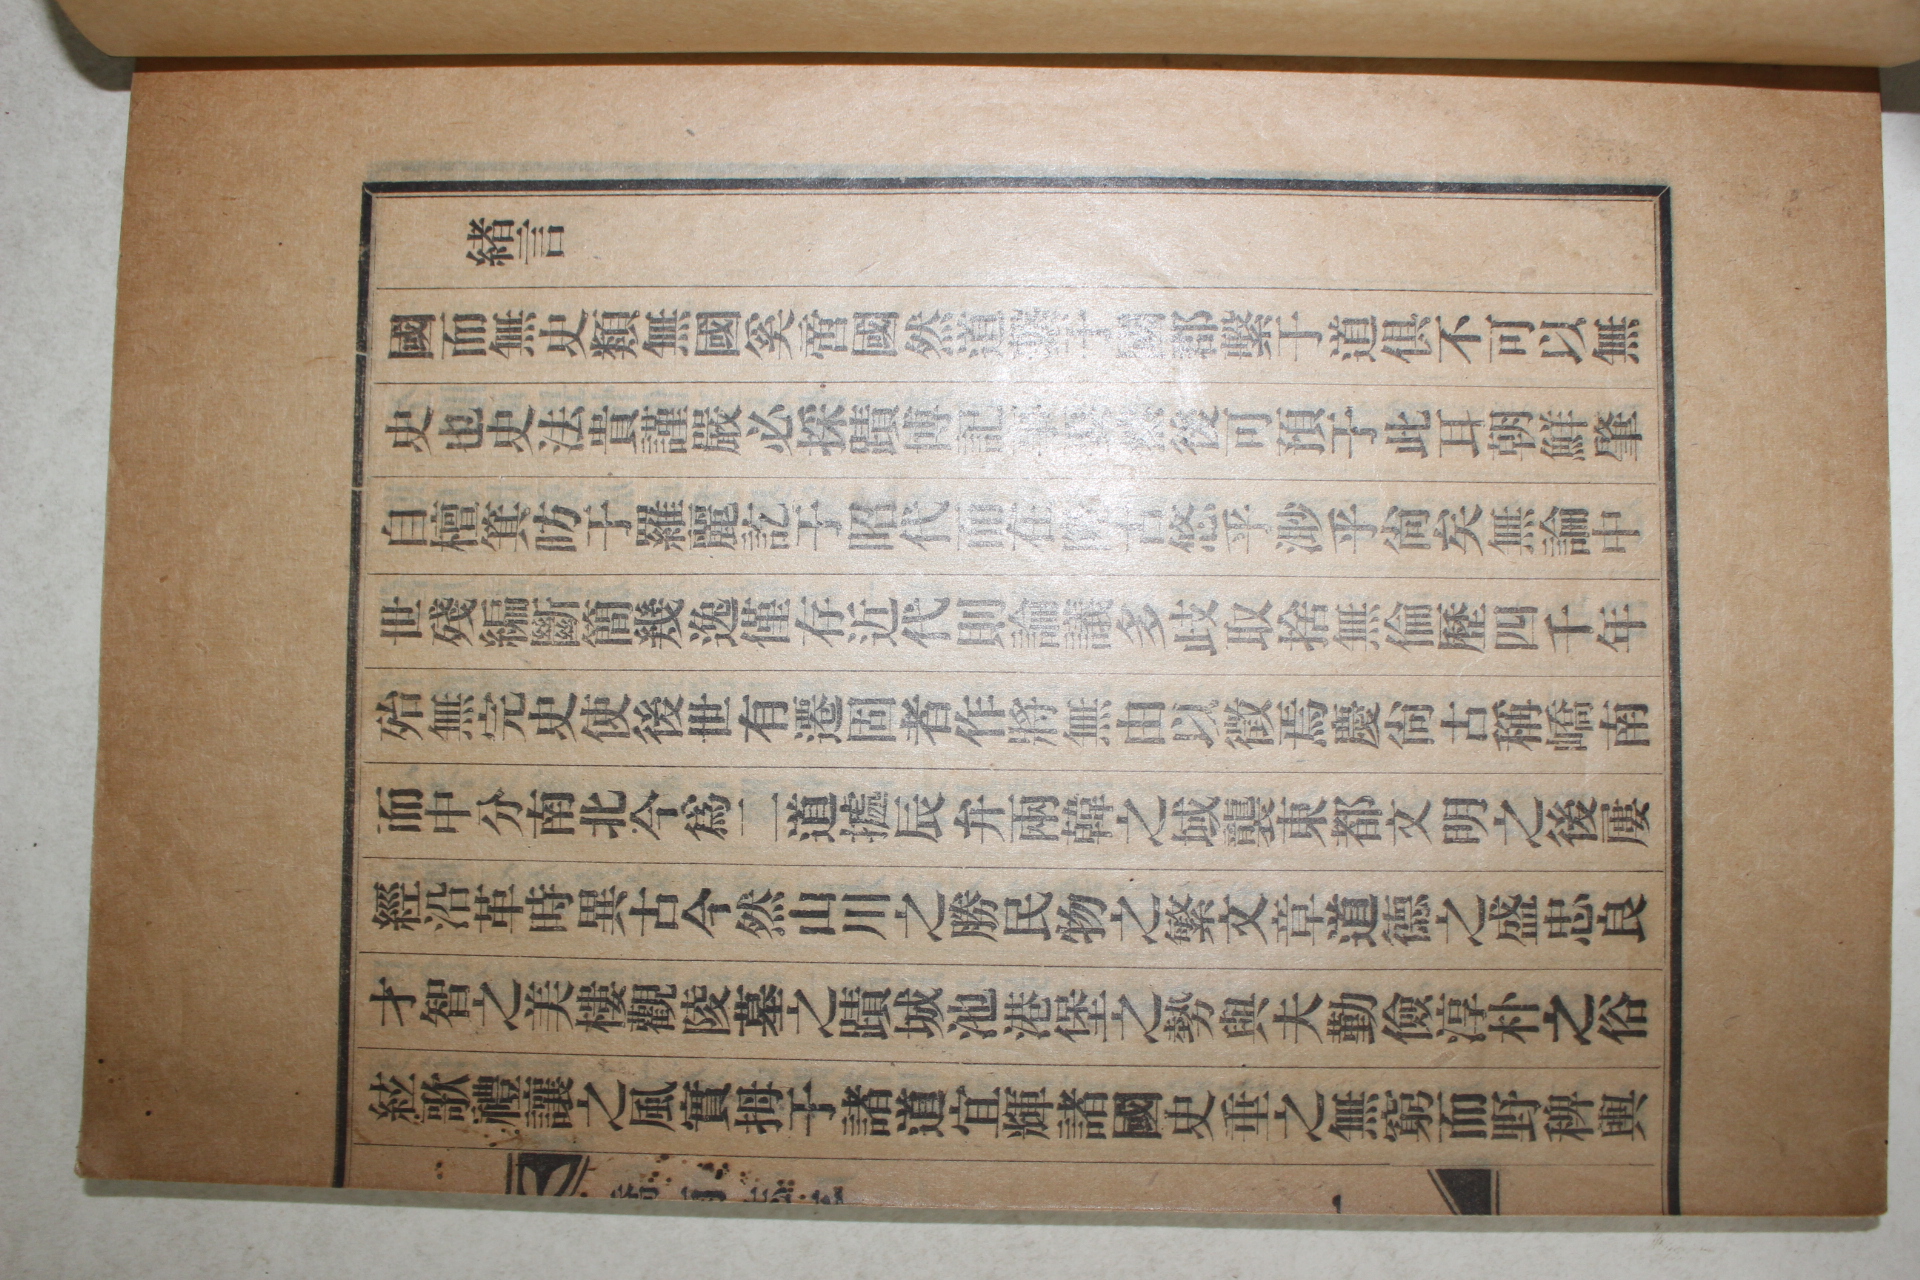 緒言
國而無史類無國矣喑國然道繫于國郡繫于道俱不可以無
史也史法貴謹嚴必採蹟博記後可預于此耳朝鮮肇
自檀箕昉于羅麗訖于昭代而在悠乎渺乎尙矣無論中
世殘編斷簡幾逸僅存近代則論議多歧取捨無倫歷四千年
殆無完史使後世有遷固者作將無由以徵焉慶尙古稱嶠南
而中分南北今爲一道據辰弁兩韓之域襲東都文明之後屢
經沿革時異古今然山川之勝民物之繁文章道德之盛忠良
才智之美樓觀陵墓之蹟城池港堡之勢與夫勤儉淳朴之俗
絃歌禮讓之風實拇于諸道宜輝諸國史垂之無窮而野稗與